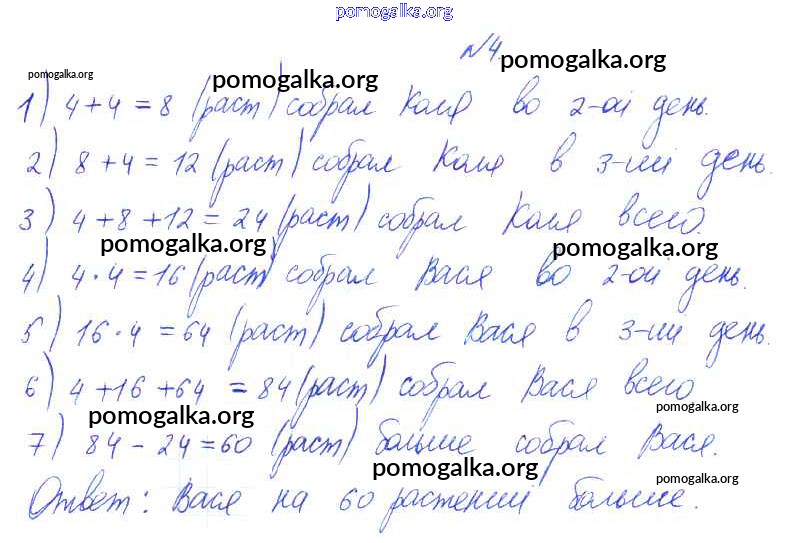 pomogalka.org
№4.
pomogalka.org
pomogalka.org
pomogalka.org
1) 4+4=8 (раст) собрал Коля во 2-ой день.
2) 8+4=12 (раст) собрал Коля в 3-ий день.
3) 4+8+12=24 (раст) собрал Коля всего.
pomogalka.org
pomogalka.org
4) 4·4=16 (раст) собрал Вася во 2-ой день.
5) 16·4=64 (раст) собрал Вася в 3-ий день.
6) 4+16+64=84 (раст) собрал Вася всего
pomogalka.org
pomogalka.org
7) 84-24=60 (раст) больше собрал Вася.
pomogalka.org
pomogalka.org
Ответ: Вася на 60 растений больше.